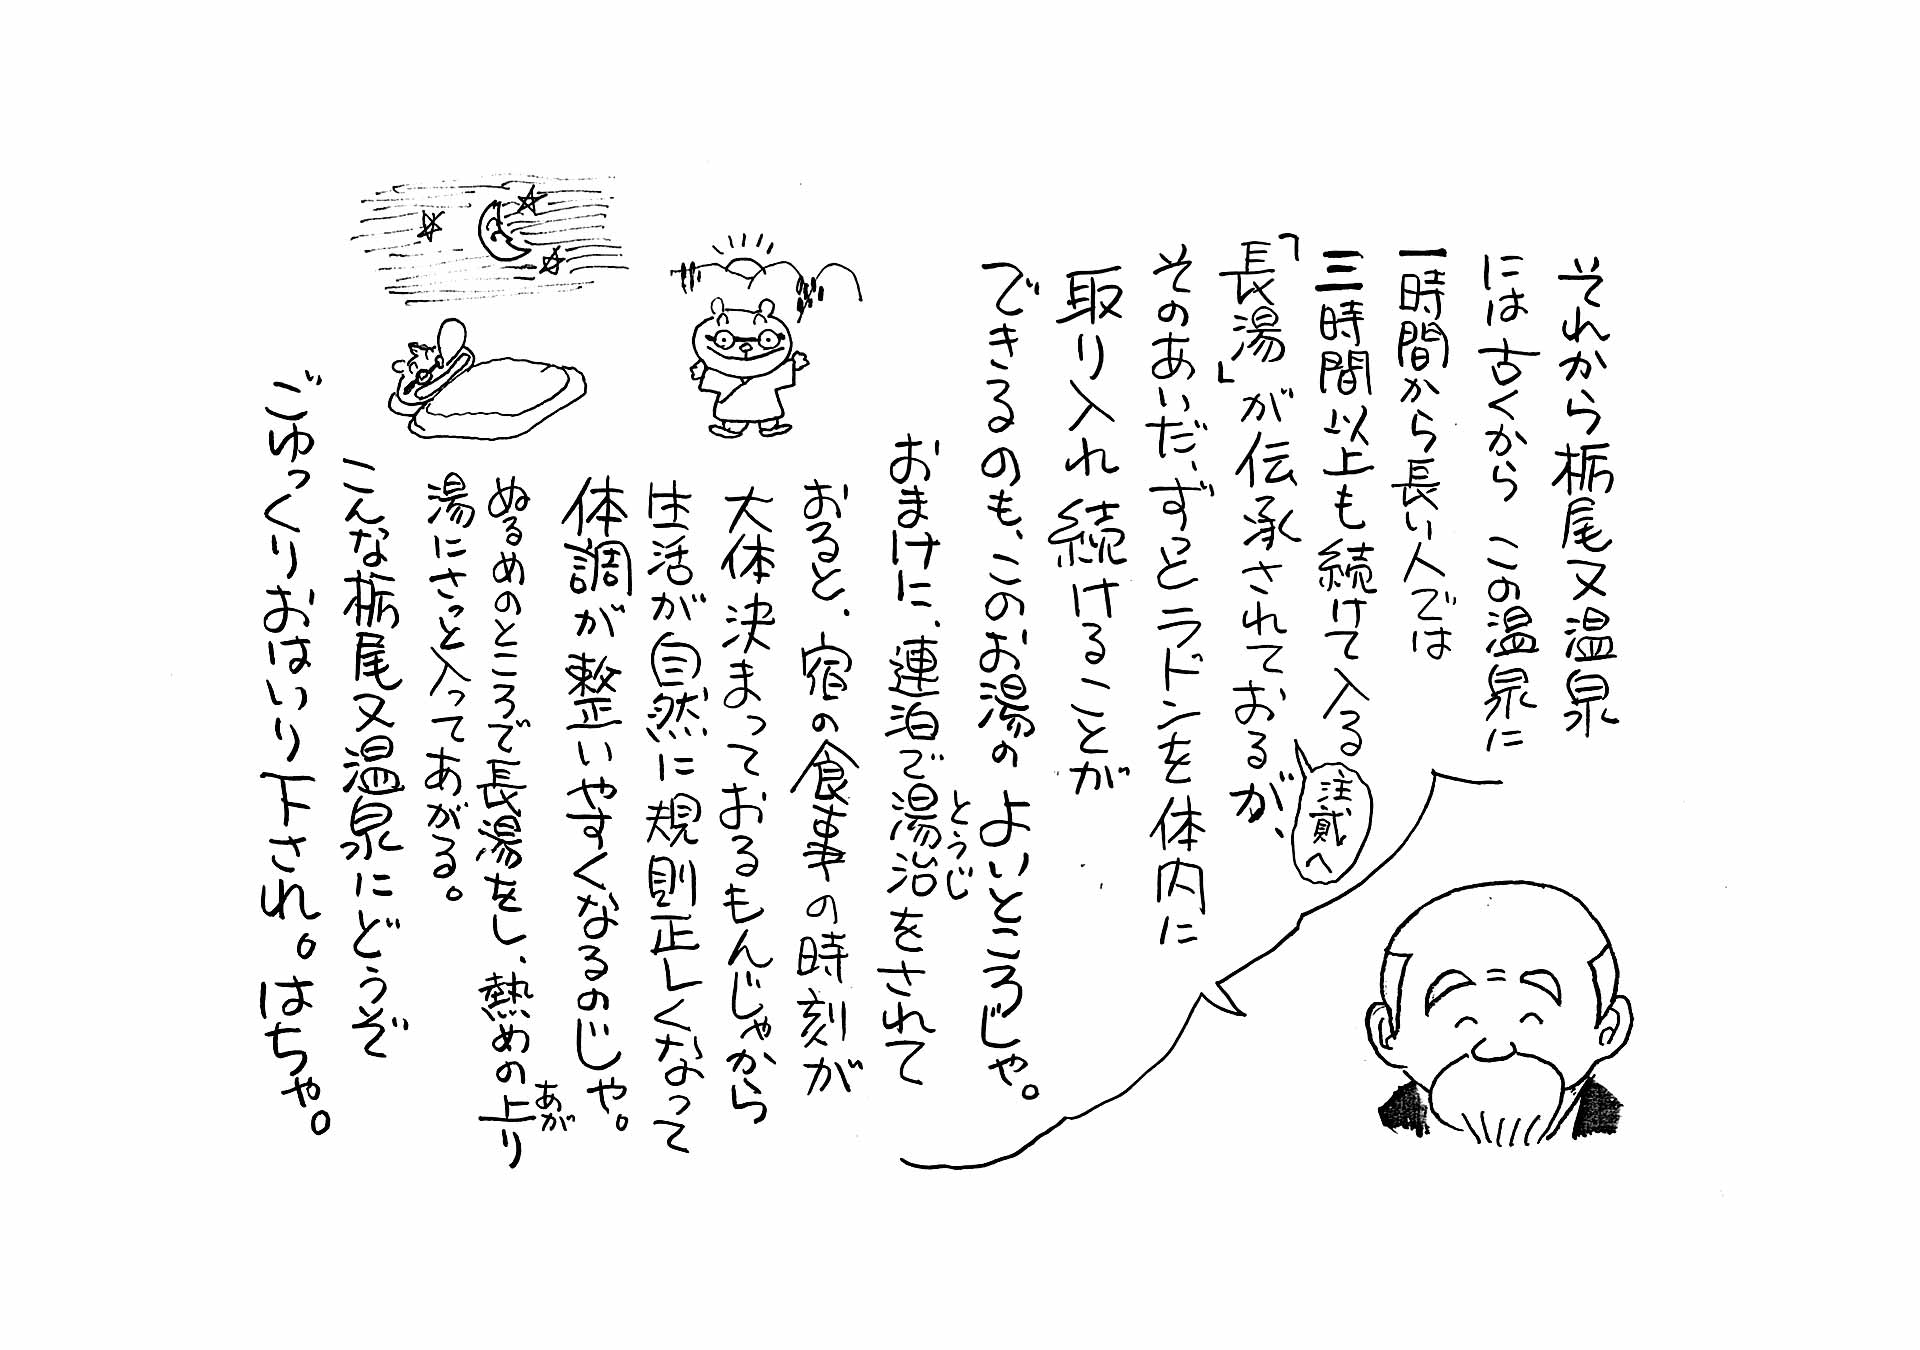 それから栃尾又温泉
には古くからこの温泉に
一時間から長い人では
三時間以上も続けて入る
「長湯」が伝承されておるが、
注貮へ
そのあいだ、ずっとラドンを体内に
取り入れ続けることが
できるのも、このお湯のよいところじゃ。
おまけに、連泊で湯治をされて
とうじ
おると、宿の食事の時刻が
大体決まっておるもんじゃから
生活が自然に規則正しくなって
体調が整いやすくなるのじゃ。
ぬるめのところで長湯をし、熱めの上り
あが
湯にさっと入ってあがる。
こんな栃尾又温泉にどうぞ
ごゆっくりおはいり下され。はちゃ。